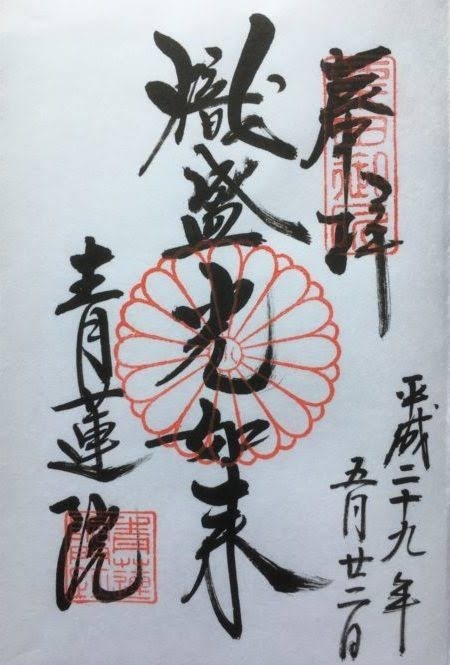 奉拝
平成二十九年
五月廿二日
熾盛光如来
青蓮院